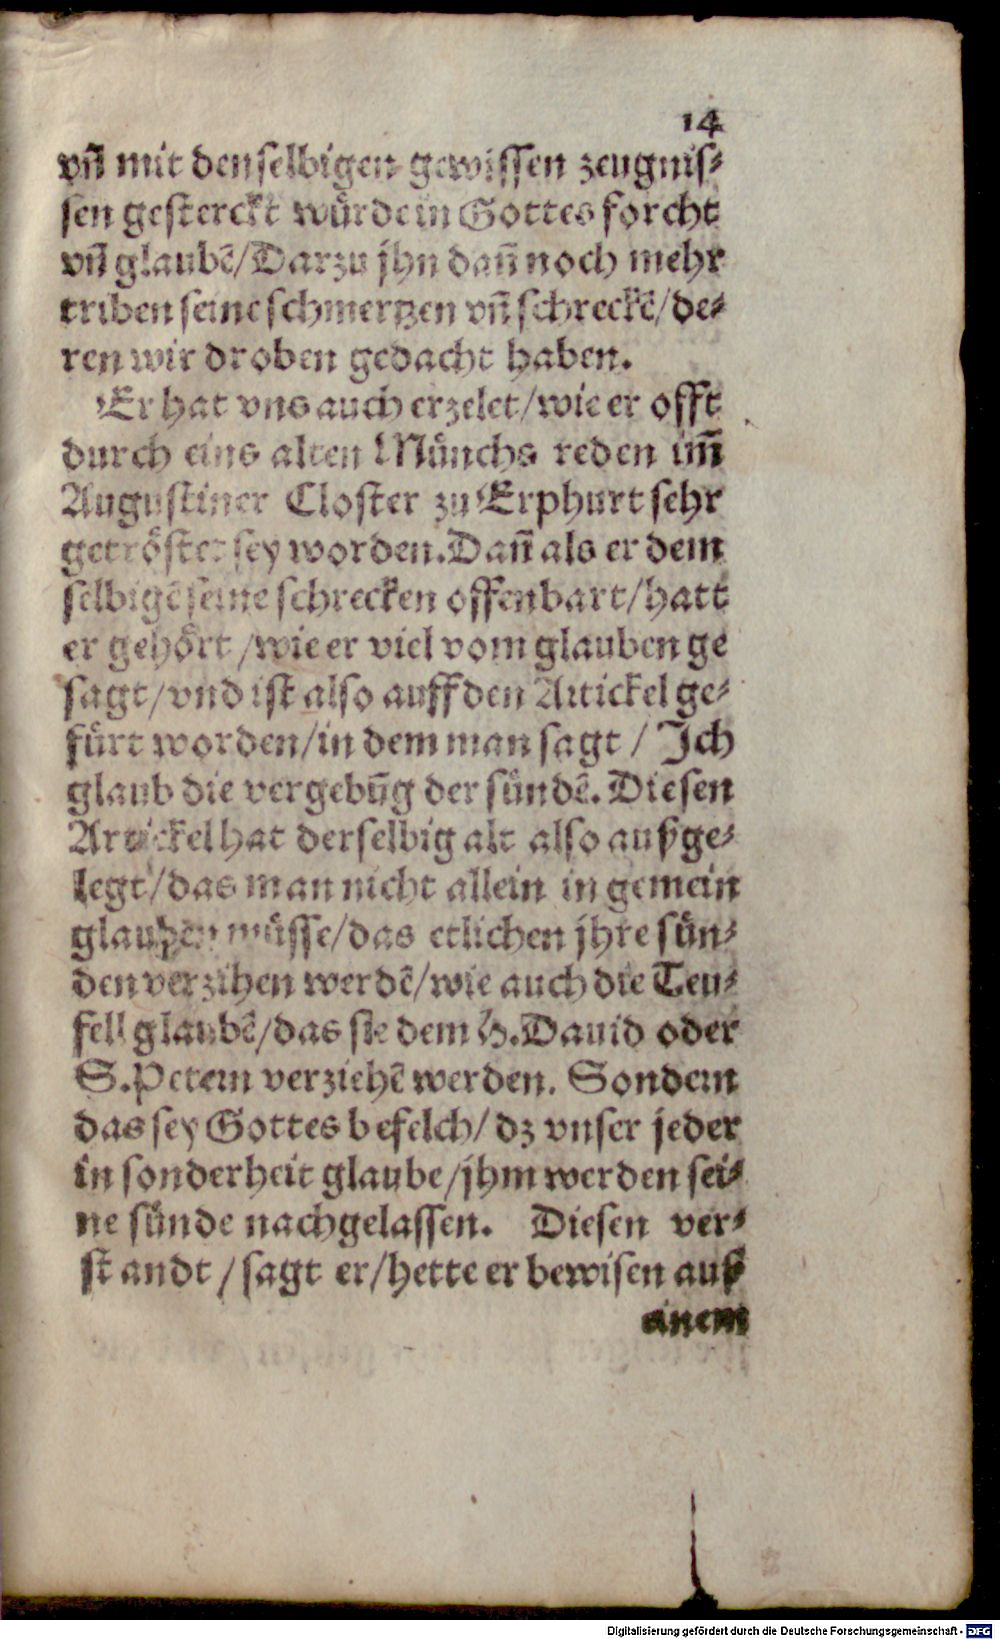 14
vñ mit denselbigen gewissen zeugnis⸗
sen gesterckt würde in Gottes forcht
vñ glaubē/ Darzu jhn dañ noch mehr
triben seine schmertzen vñ schreckē/ de⸗
ren wir droben gedacht haben.
Er hat vns auch erzelet/ wie er offt
durch eins alten Münchs reden im̃
Augustiner Closter zu Erphurt sehr
getröstet sey worden. Dañ als er dem
selbigē seine schrecken offenbart/ hatt
er gehört/ wie er viel vom glauben ge
sagt/ vnd ist also auff den Artickel ge⸗
fürt worden/ in dem man sagt/ Ich
glaub die vergebūg der sündē. Diesen
Artickel hat derselbig alt also außge⸗
legt/ das man nicht allein in gemein
glauben müsse/ das etlichen jhre sün⸗
den verzihen werdē/ wie auch die Teu⸗
fell glaubē/ das sie dem H. Dauid oder
S. Petern verziehē werden. Sondern
das sey Gottes befelch/ dz vnser jeder
in sonderheit glaube/ jhm werden sei⸗
ne sünde nachgelassen. Diesen ver⸗
standt/ sagt er/ hette er bewisen auß
einem
Digitalisierung gefördert durch die Deutsche Forschungsgemeinschaft - DFG